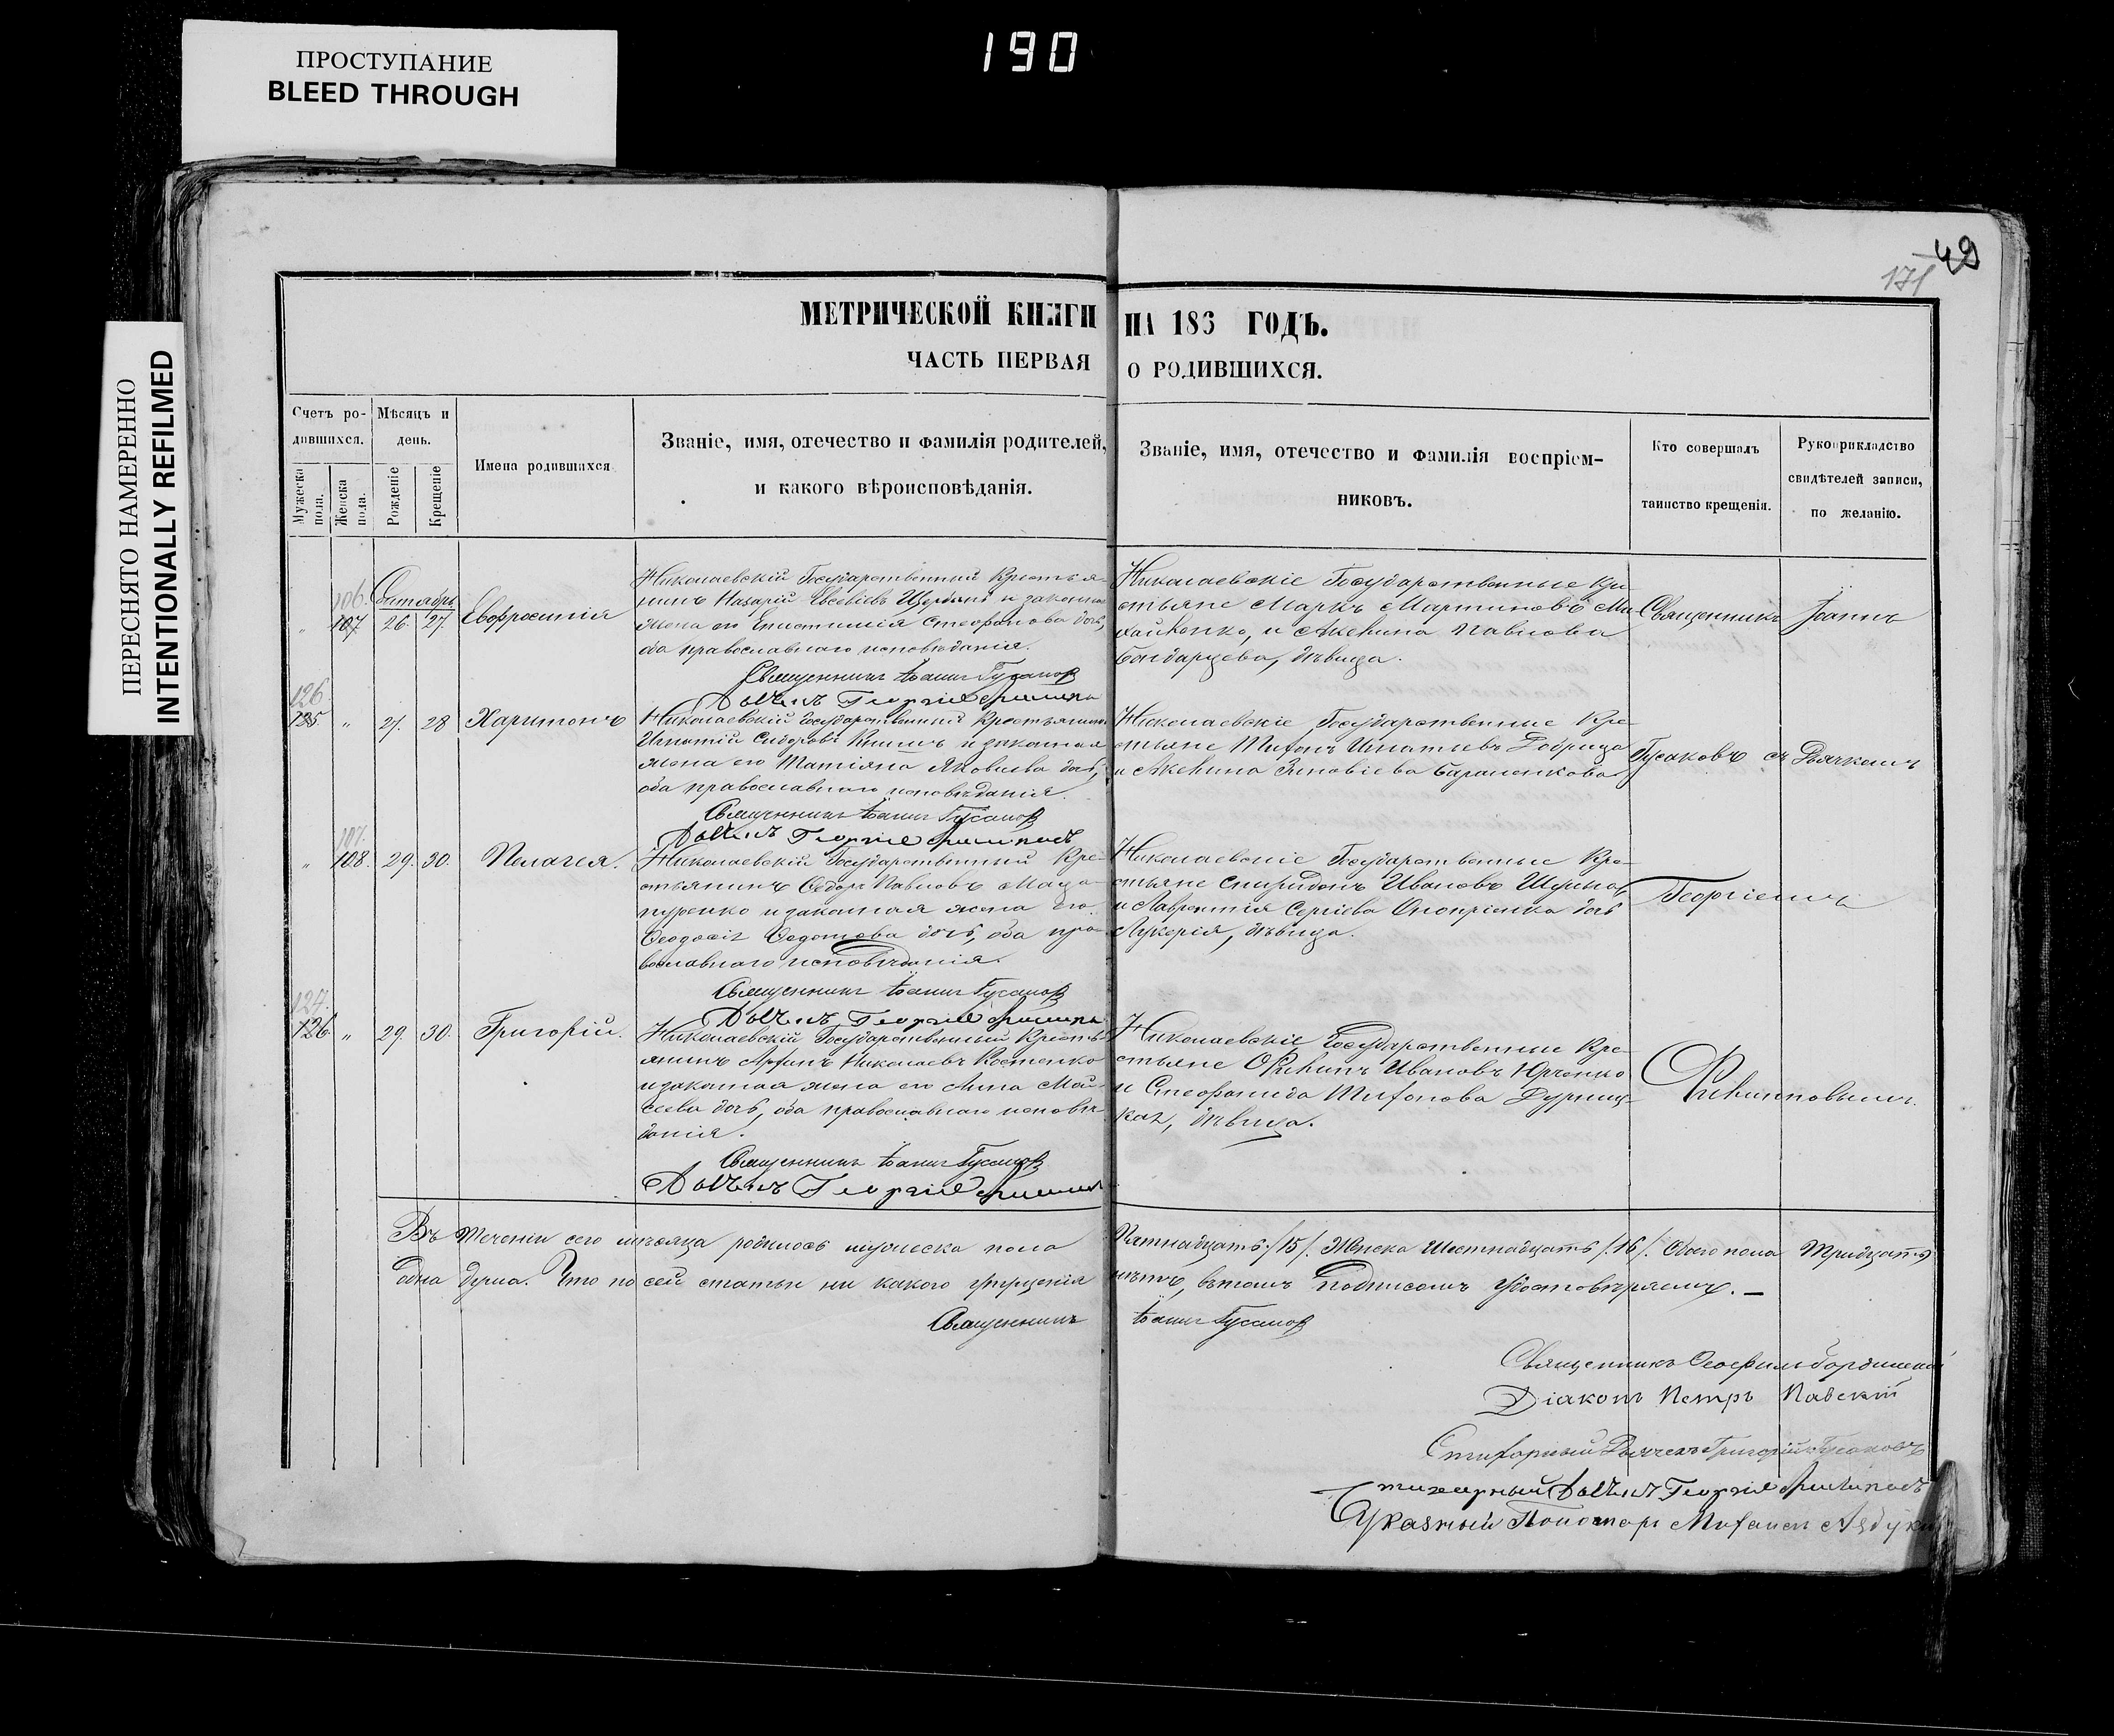 190
ПРОСТУПАНИЕ
BLEED THROUGH
ПЕРЕСНЯТО НАМЕРЕННО
INTENTIONALLY REFILMED
49
171
МЕТРИЧЕСКОЙ КНИГИ НА 186 ГОДЪ.
ЧАСТЬ ПЕРВАЯ О РОДИВШИХСЯ.
Счетъ родившихся.
Мужеска пола.
Женска пола.
Мѣсяцъ и день.
Рожденіе
Крещеніе
Имена родившихся
Званіе, имя, отечество и фамилія родителей,
и какого вѣроисповѣданія.
Званіе, имя, отечество и фамилія воспріем-
никовъ.
Кто совершалъ
таинство крещенія.
Рукоприкладство
свидѣтелей записи,
по желанію.
106.
107. 26. 27. Евфросинія
Николаевскій Государственный Крестья-
нинъ Назарій Евсевіевъ и законная
жена его Епистимія Стефанова дочь,
оба православнаго исповѣданія.
Священникъ Іоаннъ Гусаковъ
Дьячекъ Георгій
Николаевскіе Государственные Кре-
стьяне Маркъ Мартиновъ Ми-
хайленко, и Акелина Павлова
Бондарцева, дѣвица.
Священникъ Іоаннъ
126
125 " 27. 28 Харитонъ
Николаевскій Государственный Крестьянинъ
Игнатій Сидоровъ и законная
жена его Татіяна Яковлева дочь,
оба православнаго исповѣданія.
Священникъ Іоаннъ Гусаковъ
Дьячекъ Георгій
Николаевскіе Государственные Кре-
стьяне Тихонъ Игнатіевъ Добрица
и Акелина Зиновіева Бараненкова
Гусаковъ съ Дьячкомъ
107.
" 108. 29. 30. Пелагея.
Николаевскій Государственный Кре-
стьянинъ Ѳедоръ Павловъ Маца-
пуренко и законная жена его
Ѳеодосія Ѳедотова дочь, оба пра-
вославнаго исповѣданія.
Священникъ Іоаннъ Гусаковъ
Дьячекъ Георгій
Николаевскіе Государственные Кре-
стьяне Спиридонъ Ивановъ
и Лаврентія Сергіева Оноприенка дочь
Лукерія, дѣвица.
Георгіемъ
127.
126. " 29. 30. Григорій.
Николаевскій Государственный Кресть-
янинъ Николаевъ Костенко
и законная жена его Анна Мои-
сеева дочь, оба православнаго исповѣ-
данія.
Священникъ Іоаннъ Гусаковъ
Дьячекъ Георгій
Николаевскіе Государственные Кре-
стьяне Ивановъ Юрченко
и Стефанида Тихонова
дѣвица.
Въ теченіи сего мѣсяца родилось мужеска пола Пятнадцать /15/. Женска Шестнадцать /16/. Обоего пола Тридцать
одна душа. Что по сей статьи ни какого упущенія нѣтъ, въ томъ подписомъ удостовѣряемъ. —
Священникъ Іоаннъ Гусаковъ
Священникъ Ѳеофилъ
Діаконъ Петръ Павскій
Стихарный Дьячекъ Григорій Гусаковъ
Стихарный Дьячекъ Георгій
Указный Пономарь